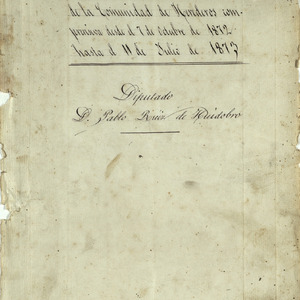 de la Comunidad de Herederos com-
prensivo desde el 7 de Octubre de 1872
hasta el 11 de Julio de 1873
Diputado
D. Pablo Ruiz de Huidobro